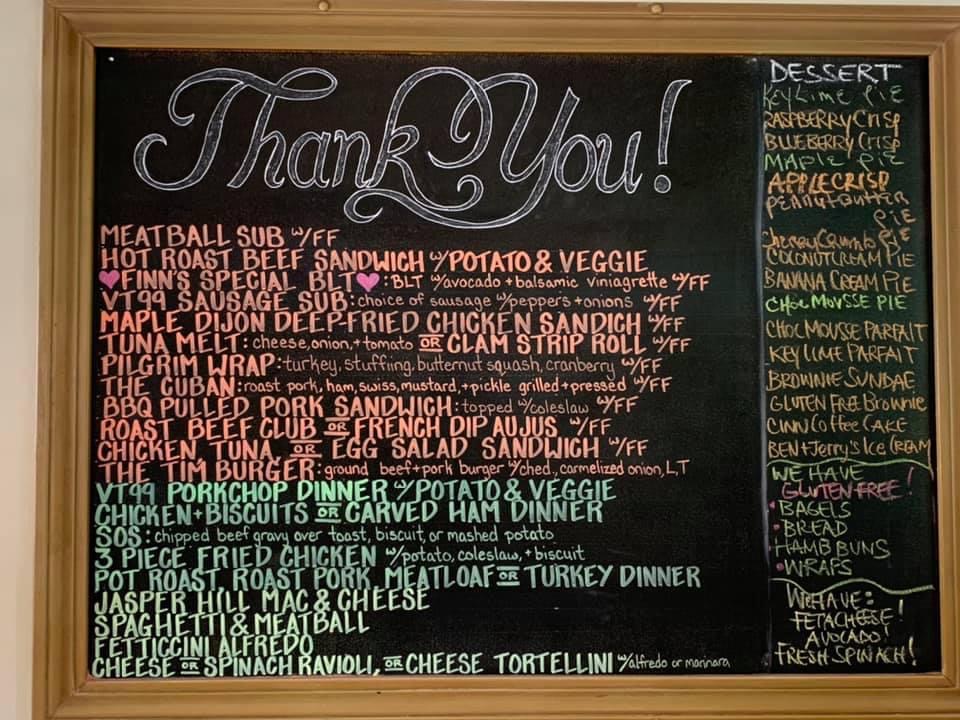 Thank You!
MEATBALL SUB w/FF
HOT ROAST BEEF SANDWICH w/POTATO & VEGGIE
FINN'S SPECIAL BLT: BLT w/avocado + balsamic viniagrette w/FF
VT99 SAUSAGE SUB: choice of sausage w/peppers + onions w/FF
MAPLE DIJON DEEP-FRIED CHICKEN SANDICH w/FF
TUNA MELT: cheese, onion, + tomato OR CLAM STRIP ROLL w/FF
PILGRIM WRAP: turkey, stuffiing, butternut squash, cranberry w/FF
THE CUBAN: roast pork, ham, swiss, mustard, + pickle grilled + pressed w/FF
BBQ PULLED PORK SANDWICH: topped w/coleslaw w/FF
ROAST BEEF CLUB OR FRENCH DIP AUJUS w/FF
CHICKEN, TUNA, OR EGG SALAD SANDWICH w/FF
THE TIM BURGER: ground beef + pork burger w/ched., carmelized onion, L,T
VT99 PORKCHOP DINNER w/POTATO & VEGGIE
CHICKEN + BISCUITS OR CARVED HAM DINNER
SOS: chipped beef gravy over toast, biscuit, or mashed potato
3 PIECE FRIED CHICKEN w/potato, coleslaw, + biscuit
POT ROAST, ROAST PORK, MEATLOAF OR TURKEY DINNER
JASPER HILL MAC & CHEESE
SPAGHETTI & MEATBALL
FETTICCINI ALFREDO
CHEESE OR SPINACH RAVIOLI, OR CHEESE TORTELLINI w/alfredo or marinara
DESSERT
Key Lime PIE
RASPBERRY Crisp
BLUEBERRY Crisp
MAPLE PIE
APPLE CRISP
PEANUT Butter
PIE
Cherry Crumb PIE
COCONUT CREAM PIE
BANANA CREAM PIE
CHOC MOUSSE PIE
CHOC MOUSSE PARFAIT
KEY LIME PARFAIT
BROWNIE SUNDAE
GLUTEN FREE Brownie
CINN COFFee CAKE
BEN + Jerry's Ice CREAM
WE HAVE
GLUTEN FREE!
• BAGELS
• BREAD
• HAMB BUNS
• WRAPS
We HAVE:
FETA CHEESE!
AVOCADO!
FRESH SPINACH!